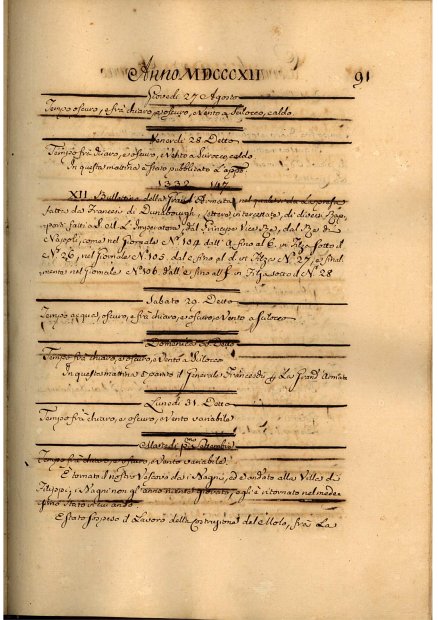 Anno MDCCCXII 91
Giovedi 27 Agosto
Tempo oscuro, e frà chiaro, e oscuro, e Vento a Scilocco, caldo
Venerdi 28 Detto
Tempo frà chiaro, e oscuro, e Vento a Scirocco, caldo
In questa mattina è stato pubblicato
1332 147
XII Bullettino della Grand Armata, nel quale si dà la presa
fatta da Francesi di Dunabourgh, lettere intercettate, di diversi Rap
porti fatti a S. M. L'Imperatore, dal Principe Vice Re, dal Re di
Napoli, come nel Giornale N° 104 dall' A fino al 6, in Filza sotto il
N° 26, nel Giornale N° 105 dal fino al in Filza N° 27, e final
mente nel Giornale N° 106 dall' fino al in Filza sotto il N° 28
Sabato 29 Detto
Tempo acqua, oscuro, e frà chiaro, e oscuro, e Vento a Scilocco
Domenica 30 Detto
Tempo frà chiaro, e oscuro, e Vento a Scilocco
In questa mattina è partito il Generale Franceschi p la Grand' Armata
Lunedi 31 Detto
Tempo frà chiaro, e oscuro, e Vento variabile
Martedi p.mo Settembre
Tempo frà chiaro, e oscuro, e Vento variabile
È tornato il nostro Vescovo da i Bagni, ed è andato alla Villa di
Filippi, i Bagni non gl' anno niente giovato, egl' è ritornato nel mede
simo stato che andò
È stato sospeso il Lavoro della Costruzione del Molo, frà La